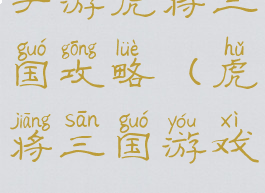 手游虎将三
guó gōng lüè hǔ
国攻略（虎
jiāng sān guó yóu xì
将三国游戏